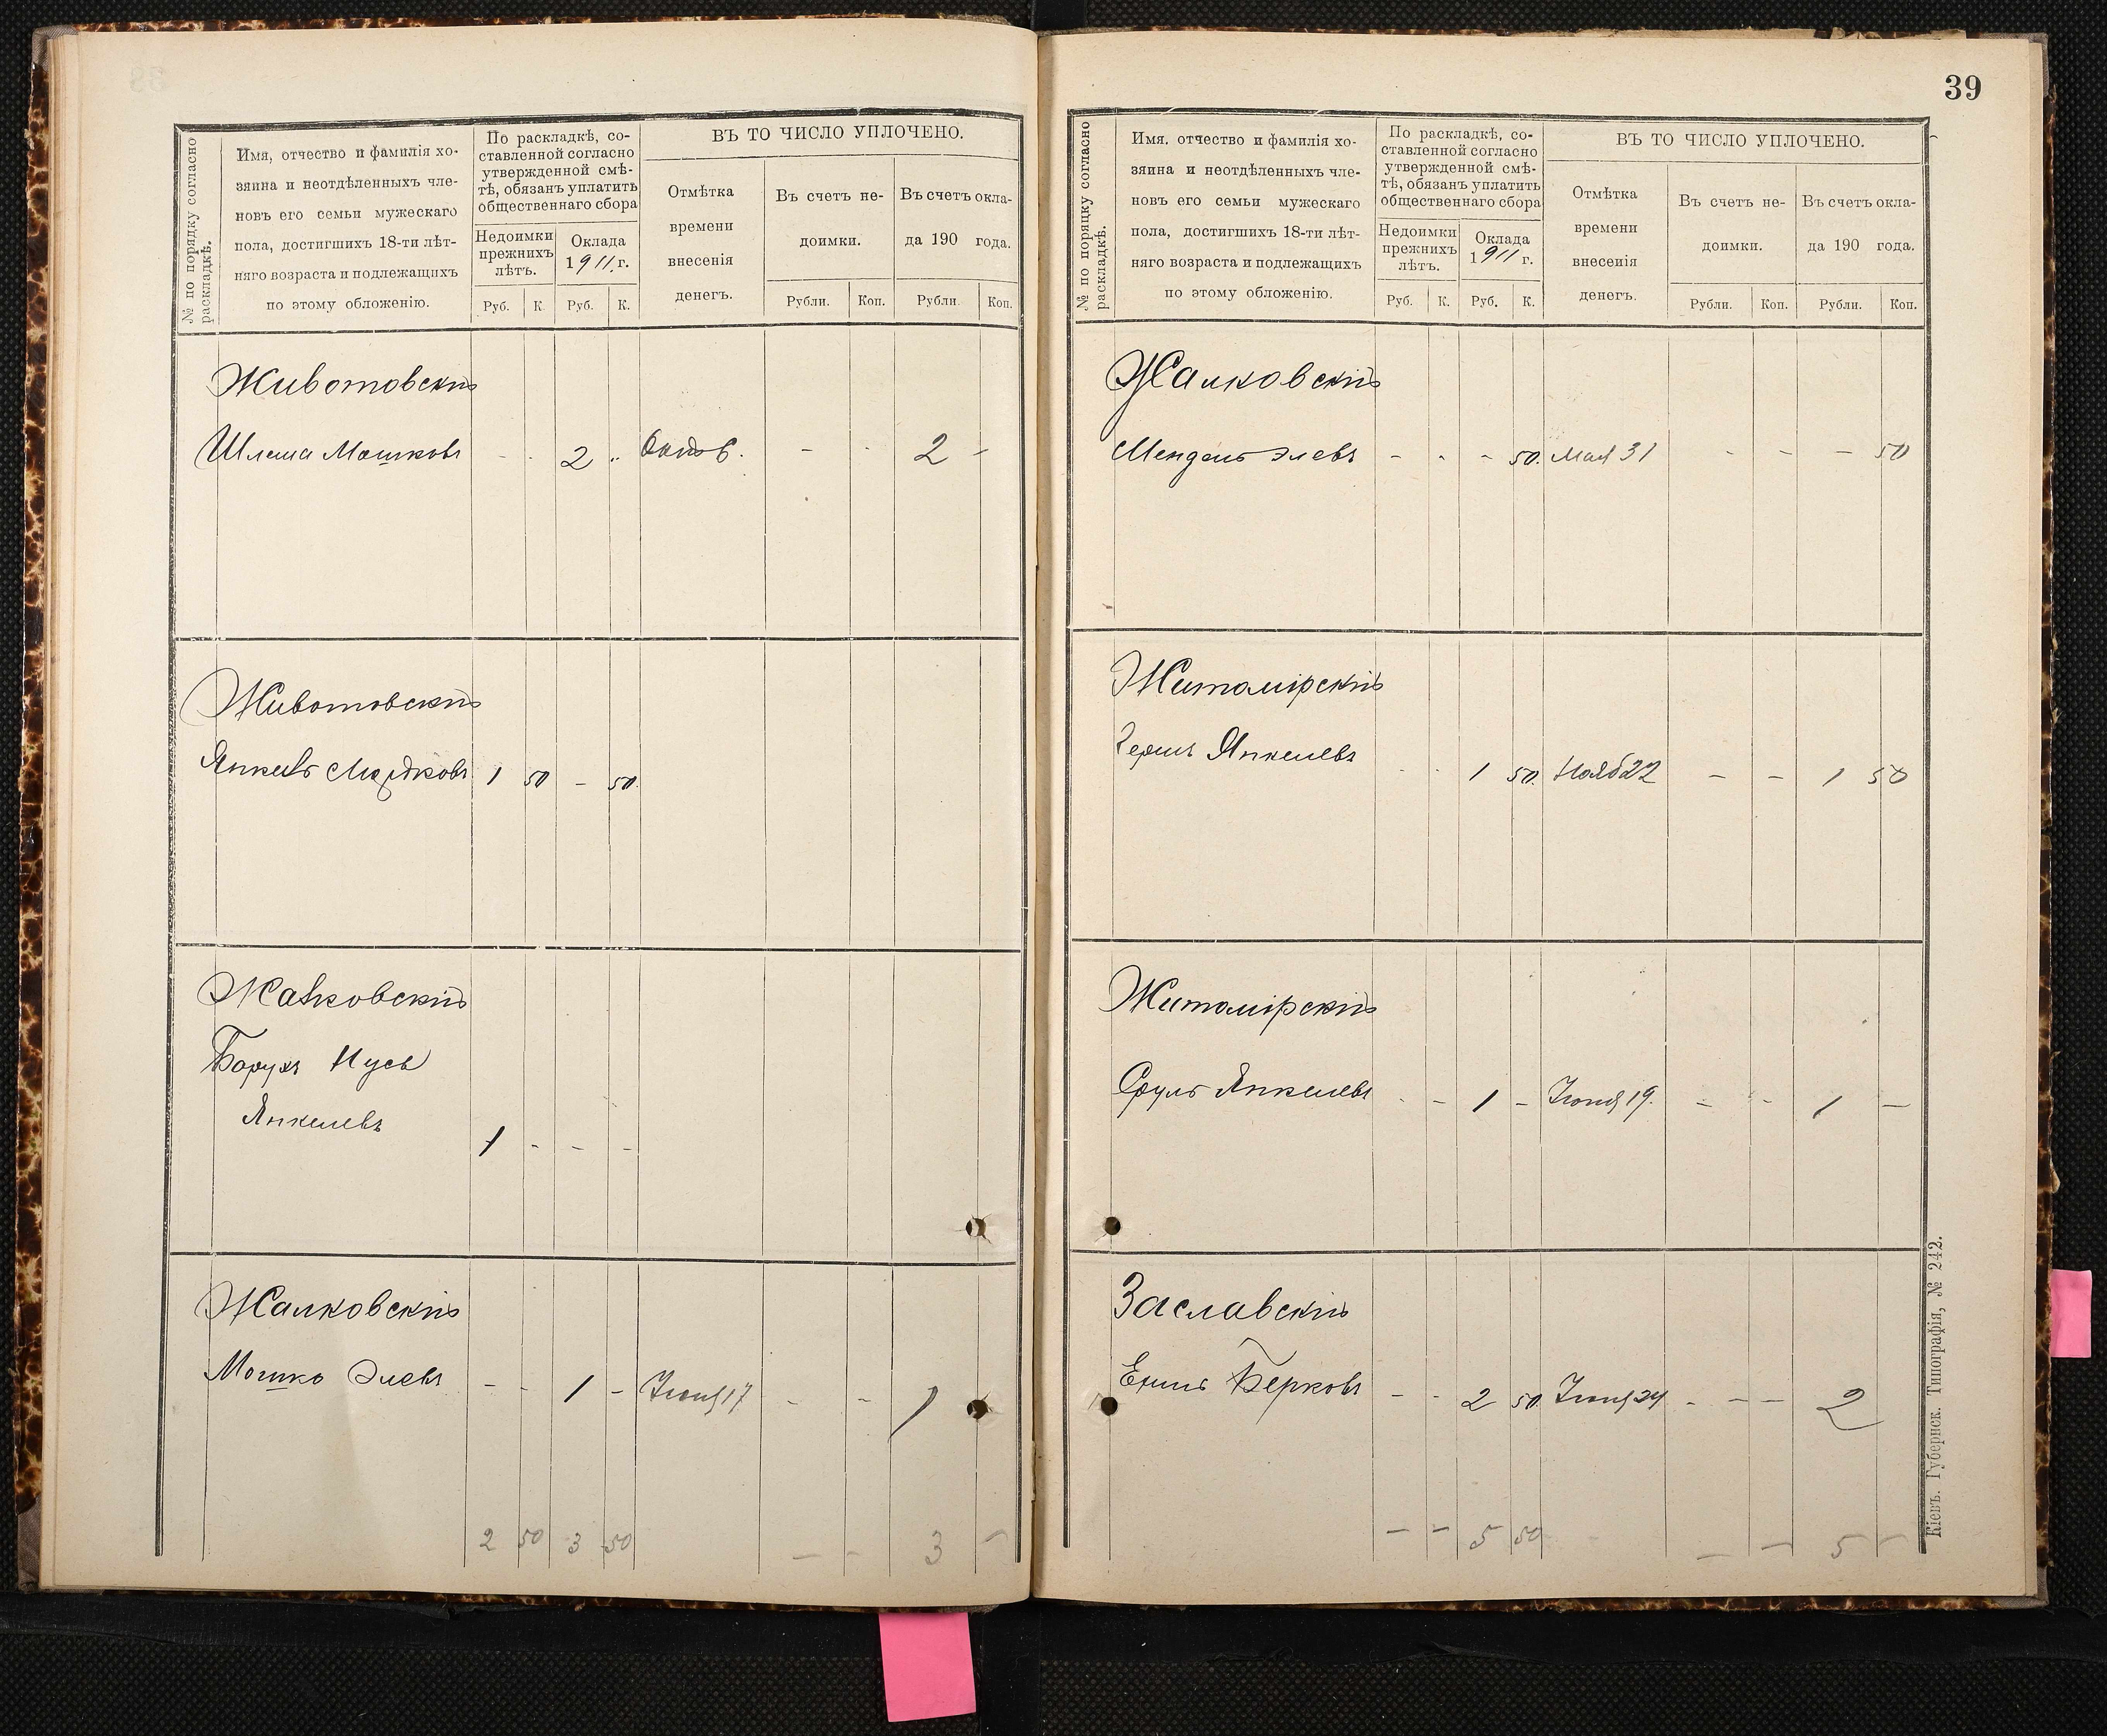 39
№ по порядку согласно раскладкѣ.
Имя, отчество и фамилія хо-
зяина и неотдѣленныхъ чле-
новъ его семьи мужескаго
пола, достигшихъ 18-ти лѣт-
няго возраста и подлежащихъ
по этому обложенію.
По раскладкѣ, со-
ставленной согласно
утвержденной смѣ-
тѣ, обязанъ уплатить
общественнаго сбора
Недоимки
прежнихъ
лѣтъ.
Оклада
1911 г.
Руб. К. Руб. К.
ВЪ ТО ЧИСЛО УПЛОЧЕНО.
Отмѣтка
времени
внесенія
денегъ.
Въ счетъ не-
доимки.
Въ счетъ окла-
да 190 года.
Рубли. Коп. Рубли. Коп.
Животовскій
Шлема Мошковъ - - 2 " Октяб. - - 2 -
Животовскій
Янкель Мошковъ 1 50 - 50
Жалковскій
Борухъ Нусь
Янкелевъ
1 - - -
Жалковскій
Мошко Элевъ - - 1 - Іюня 17 - - 1
2 50 3 50 - - 3 -
№ по порядку согласно раскладкѣ.
Имя, отчество и фамилія хо-
зяина и неотдѣленныхъ чле-
новъ его семьи мужескаго
пола, достигшихъ 18-ти лѣт-
няго возраста и подлежащихъ
по этому обложенію.
По раскладкѣ, со-
ставленной согласно
утвержденной смѣ-
тѣ, обязанъ уплатить
общественнаго сбора
Недоимки
прежнихъ
лѣтъ.
Оклада
1911 г.
Руб. К. Руб. К.
ВЪ ТО ЧИСЛО УПЛОЧЕНО.
Отмѣтка
времени
внесенія
денегъ.
Въ счетъ не-
доимки.
Въ счетъ окла-
да 190 года.
Рубли. Коп. Рубли. Коп.
Жалковскій
Мендель Элевъ - - - 50. Мая 31 - - - 50
Житомірскій
Гершъ Янкелевъ
- - 1 50. Нояб 22 - - 1 50
Житомірскій
Сруль Янкелевъ - - 1 - Іюня 19. - - 1 -
Заславскій
Ершъ Берковъ - - 2 50 Іюня 24 - - - 2
- - 5 50 - - 5 -
Кіевъ. Губернск. Типографія, № 242.